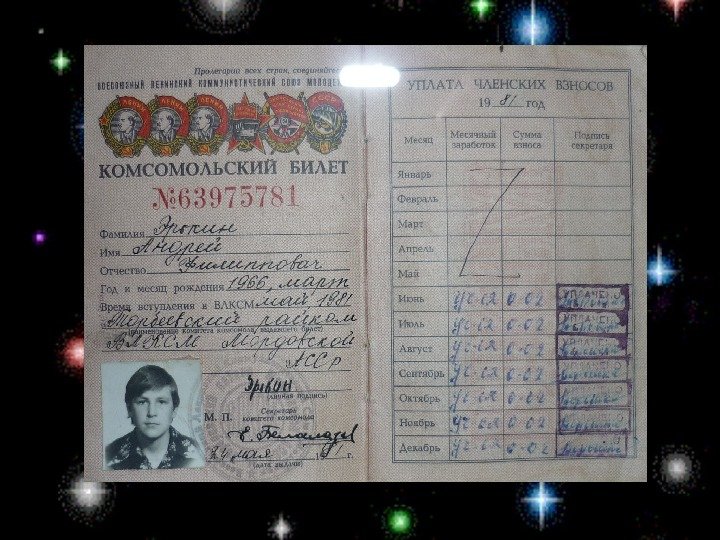 Пролетарии всех стран, соединяйтесь
ВСЕСОЮЗНЫЙ ЛЕНИНСКИЙ КОММУНИСТИЧЕСКИЙ СОЮЗ МОЛОДЕ
КОМСОМОЛЬСКИЙ БИЛЕТ
№63975781
Фамилия Эрькин
Имя Андрей
Отчество Филиппович
Год и месяц рождения 1966, март
Время вступления в ВЛКСМ май 1981
Торбеевский райком
(наименование комитета комсомола, выдавшего билет)
ВЛКСМ Мордовской
АССР
(личная подпись)
М. П.
Секретарь
комитета комсомола
24 мая 1981 г.
(дата выдачи)
УПЛАТА ЧЛЕНСКИХ ВЗНОСОВ
1981 год
Месяц Месячный заработок Сумма взноса Подпись секретаря
Январь
Февраль
Март
Апрель
Май
Июнь уч-ся 0-02 УПЛАЧЕНО
Июль уч-ся 0-02 УПЛАЧЕНО
Август уч-ся 0-02 УПЛАЧЕНО
Сентябрь уч-ся 0-02
Октябрь уч-ся 0-02
Ноябрь уч-ся 0-02
Декабрь уч-ся 0-02